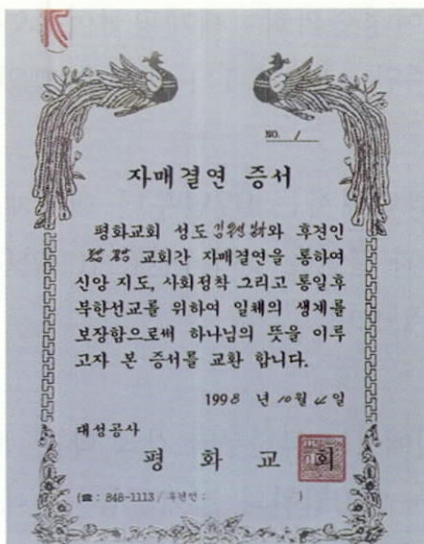 NO. 1
자매결연 증서
평화교회 성도 와 후견인
교회간 자매결연을 통하여
신앙 지도, 사회정착 그리고 통일후
북한선교를 위하여 일체의 생계를
보장함으로써 하나님의 뜻을 이루
고자 본 증서를 교환 합니다.
1998 년 10월 4일
대성공사
평 화 교 회
(☎ : 848-1113 / 후견인 : )